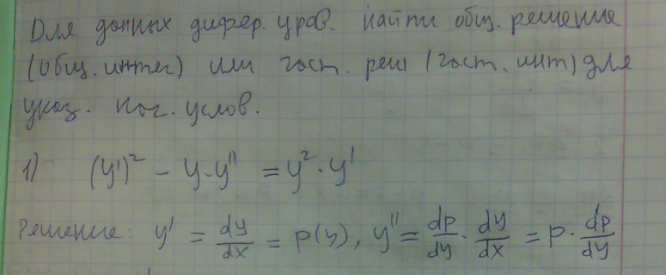 Для данных дифер. уров. найти общ. решение
(общ. интег) или част. реш (част. инт) для
указ. нач. услов.
1) (y')² - y·y'' = y²·y'
Решение: y' = dy/dx = p(y), y'' = dp/dy · dy/dx = p · dp/dy